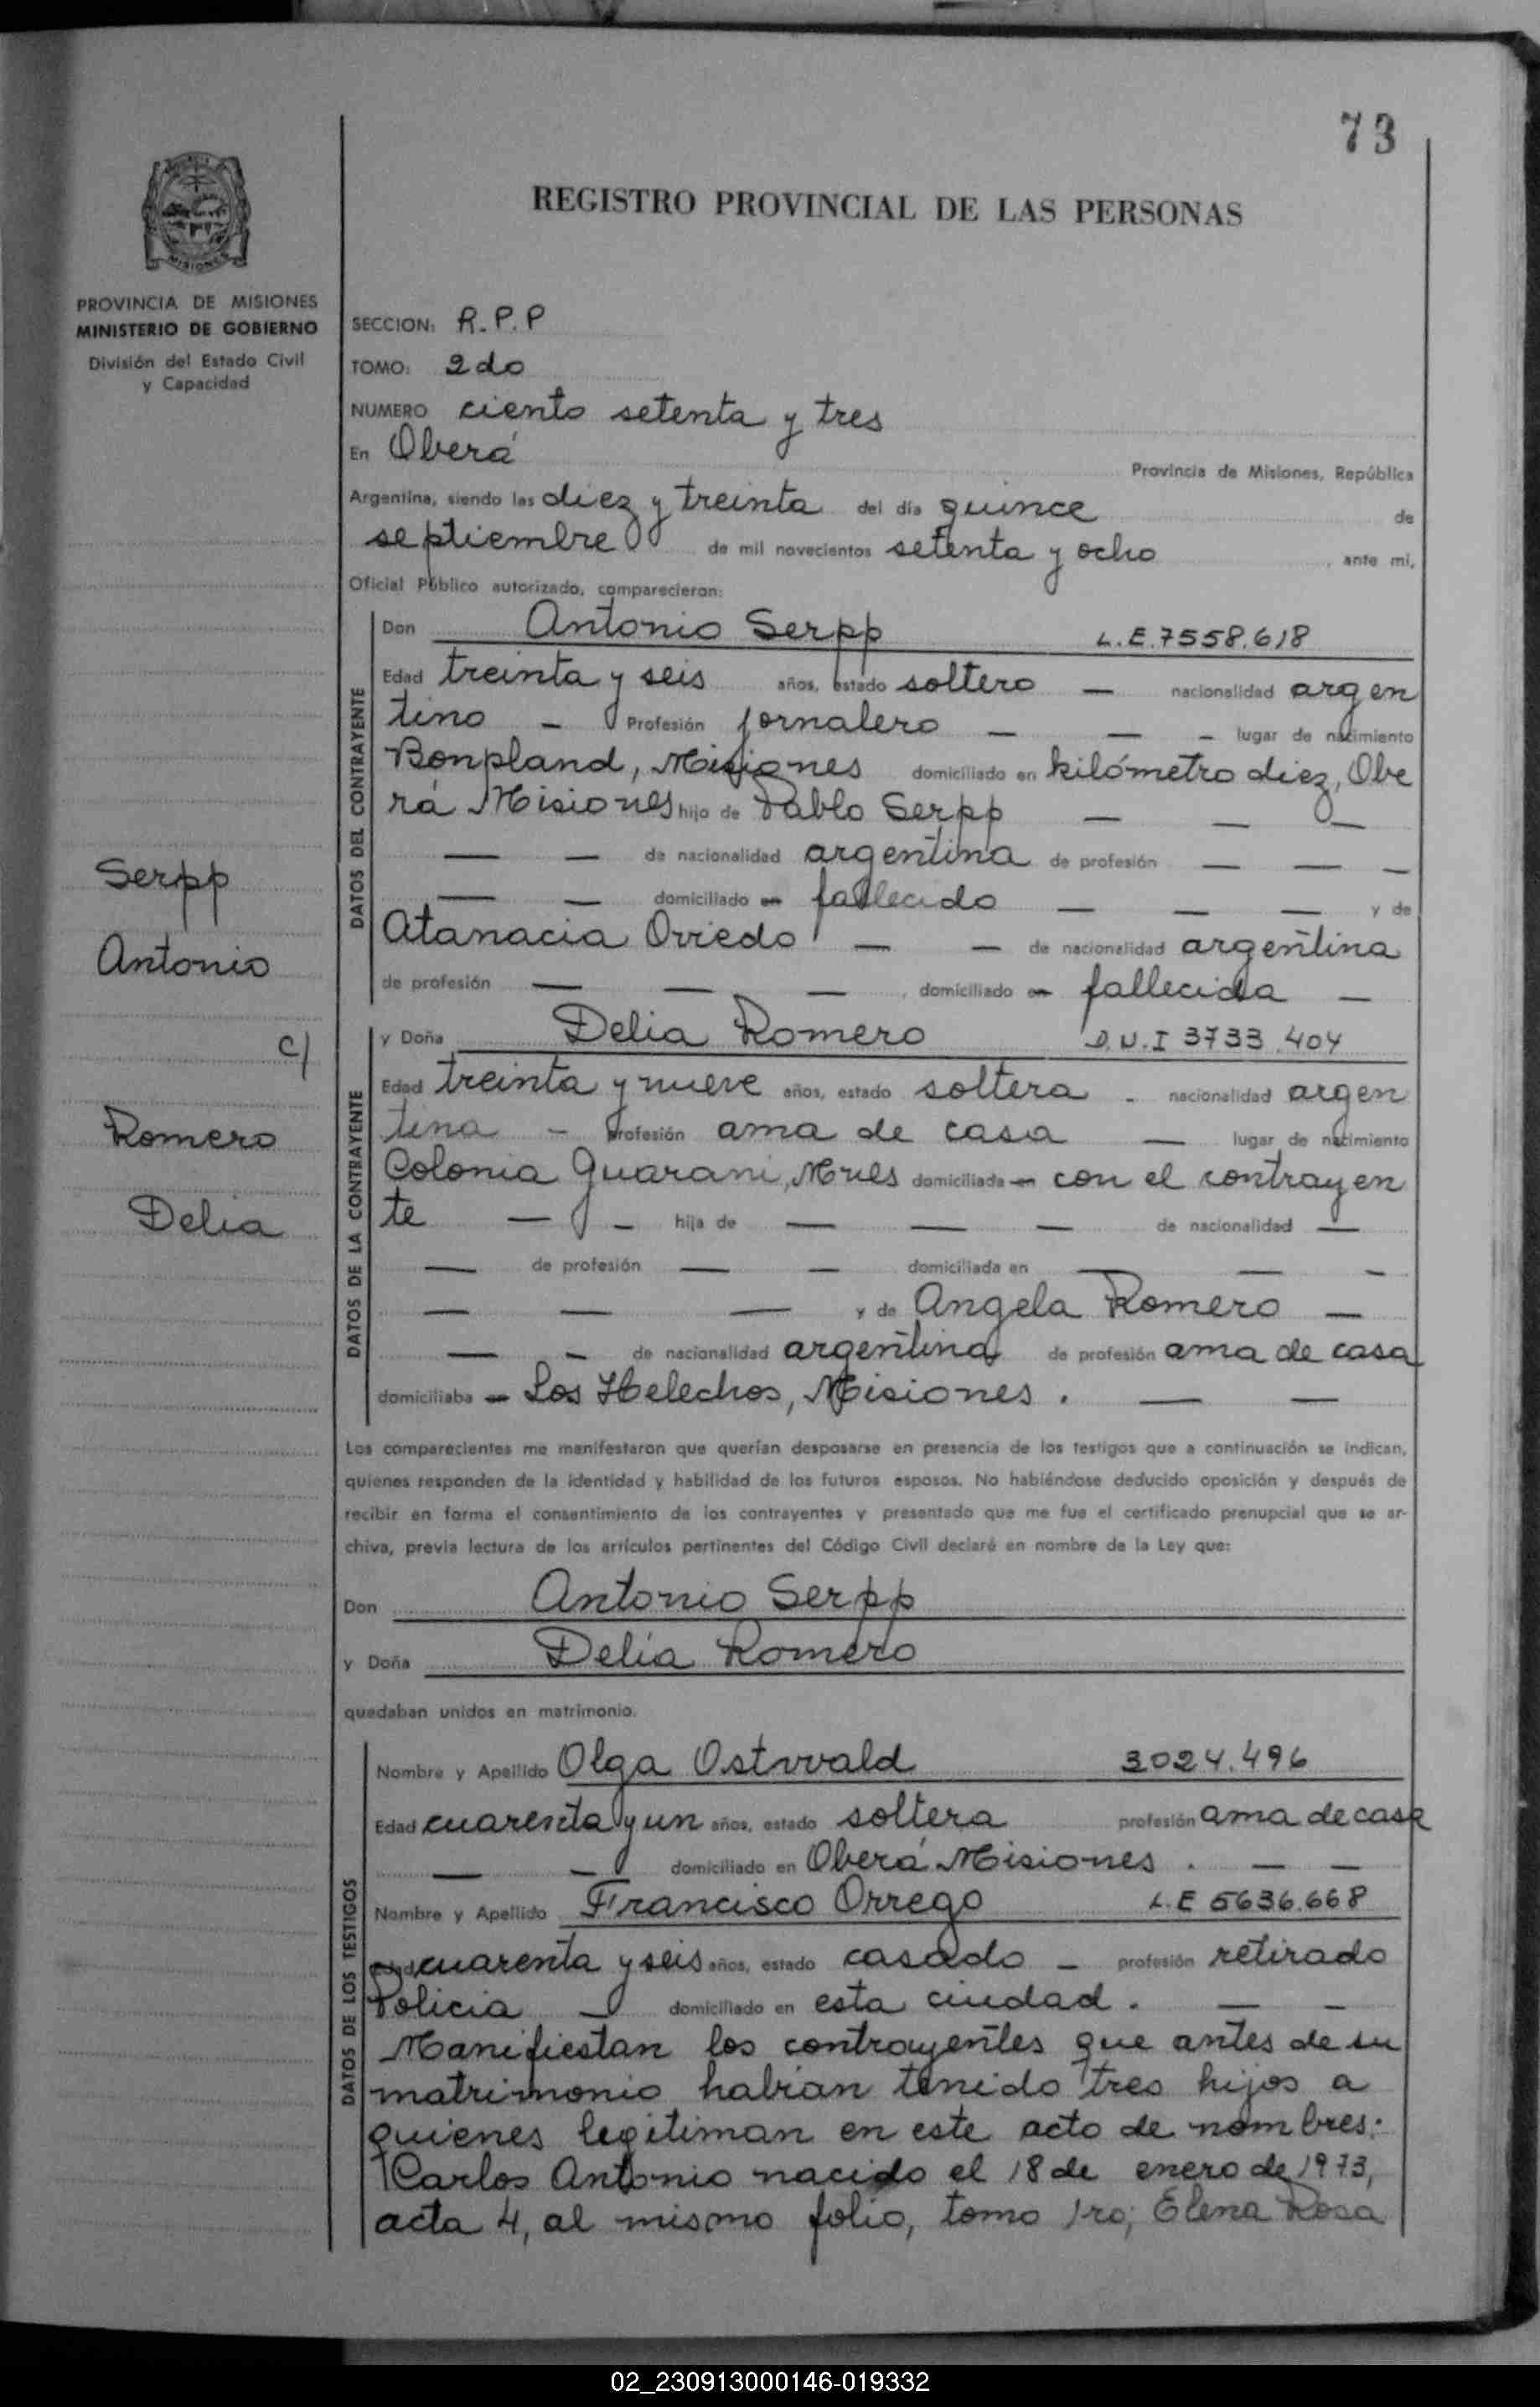 73
REGISTRO PROVINCIAL DE LAS PERSONAS
MISIONES
PROVINCIA DE MISIONES
MINISTERIO DE GOBIERNO
División del Estado Civil
y Capacidad
SECCION: R.P.P
TOMO: 2do
NUMERO ciento setenta y tres
En Oberá
Provincia de Misiones, República
Argentina, siendo las diez y treinta del día quince de
septiembre de mil novecientos setenta y ocho, ante mi,
Oficial Público autorizado, comparecieron:
DATOS DEL CONTRAYENTE
Don Antonio Serpp L.E.7558.618
Edad treinta y seis años, estado soltero — nacionalidad argen
tino — Profesión jornalero — — — lugar de nacimiento
Bonpland, Misiones domiciliado en kilómetro diez, Obe
rá Misiones hijo de Pablo Serpp — — —
— — de nacionalidad argentina de profesión — — —
— — domiciliado en fallecido — — — y de
Atanacia Oviedo — — de nacionalidad argentina
de profesión — — —, domiciliado en fallecida —
Serpp
Antonio
c/
Romero
Delia
DATOS DE LA CONTRAYENTE
y Doña Delia Romero D.N.I 3733.404
Edad treinta y nueve años, estado soltera - nacionalidad argen
tina - Profesión ama de casa — lugar de nacimiento
Colonia Guarani, Mnes domiciliada en con el contrayen
te — — hija de — — — de nacionalidad —
— de profesión — — domiciliada en — — —
— — — y de Angela Romero —
— — de nacionalidad argentina de profesión ama de casa
domiciliaba en Los Helechos, Misiones. — —
Los comparecientes me manifestaron que querían desposarse en presencia de los testigos que a continuación se indican,
quienes responden de la identidad y habilidad de los futuros esposos. No habiéndose deducido oposición y después de
recibir en forma el consentimiento de los contrayentes y presentado que me fue el certificado prenupcial que se ar-
chiva, previa lectura de los artículos pertinentes del Código Civil declaré en nombre de la Ley que:
Don Antonio Serpp
y Doña Delia Romero
quedaban unidos en matrimonio.
DATOS DE LOS TESTIGOS
Nombre y Apellido Olga Ostwald 3024.496
Edad cuarenta y un años, estado soltera profesión ama de casa
— — domiciliado en Oberá Misiones. — —
Nombre y Apellido Francisco Orrego L.E 5636.668
Edad cuarenta y seis años, estado casado — profesión retirado
Policia — domiciliado en esta ciudad. — —
Manifiestan los contrayentes que antes de su
matrimonio habian tenido tres hijos a
quienes legitiman en este acto de nombres:
Carlos Antonio nacido el 18 de enero de 1973,
acta 4, al mismo folio, tomo 1ro; Elena Rosa
02_230913000146-019332